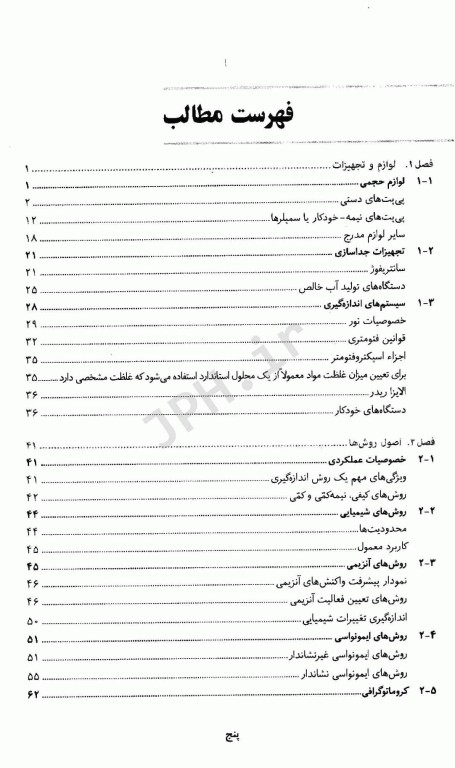 فهرست مطالب
فصل ۱. لوازم و تجهیزات ۱
۱-۱ لوازم حجمی ۱
پی‌پت‌های دستی ۲
پی‌پت‌های نیمه-خودکار یا سمپلرها ۱۲
سایر لوازم مدرج ۱۸
۱-۲ تجهیزات جداسازی ۲۱
سانتریفوژ ۲۱
دستگاه‌های تولید آب خالص ۲۵
۱-۳ سیستم‌های اندازه‌گیری ۲۸
خصوصیات نور ۲۹
قوانین فتومتری ۳۲
اجزاء اسپکتروفتومتر ۳۵
برای تعیین میزان غلظت مواد معمولاً از یک محلول استاندارد استفاده می‌شود که غلظت مشخصی دارد ۳۵
الایزا ریدر ۳۶
دستگاه‌های خودکار ۳۶
فصل ۲. اصول روش‌ها ۴۱
۲-۱ خصوصیات عملکردی ۴۱
ویژگی‌های مهم یک روش اندازه‌گیری ۴۱
روش‌های کیفی، نیمه‌کمّی و کمّی ۴۲
۲-۲ روش‌های شیمیایی ۴۴
محدودیت‌ها ۴۴
کاربرد معمول ۴۵
۲-۳ روش‌های آنزیمی ۴۵
نمودار پیشرفت واکنش‌های آنزیمی ۴۶
روش‌های تعیین فعالیت آنزیمی ۴۶
اندازه‌گیری تغییرات شیمیایی ۵۰
۲-۴ روش‌های ایمونواسی ۵۱
روش‌های ایمونواسی غیرنشاندار ۵۱
روش‌های ایمونواسی نشاندار ۵۵
۲-۵ کروماتوگرافی ۶۲
پنج
JPH.ir